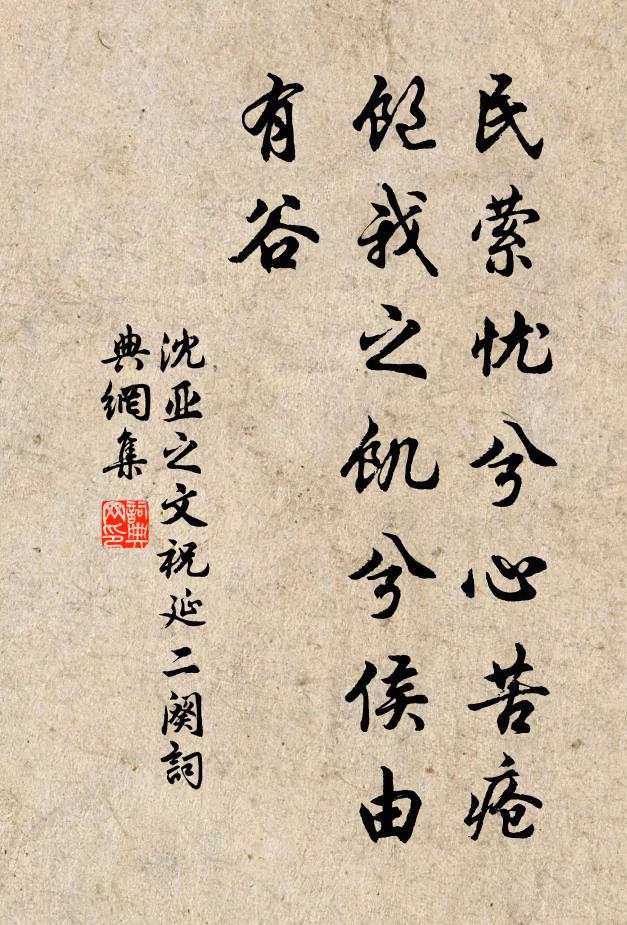 民萦忧兮心苦疮
饱我之饥兮侯由
有谷
沈亚之文祝延二阕詞
典網集
詞典
网印